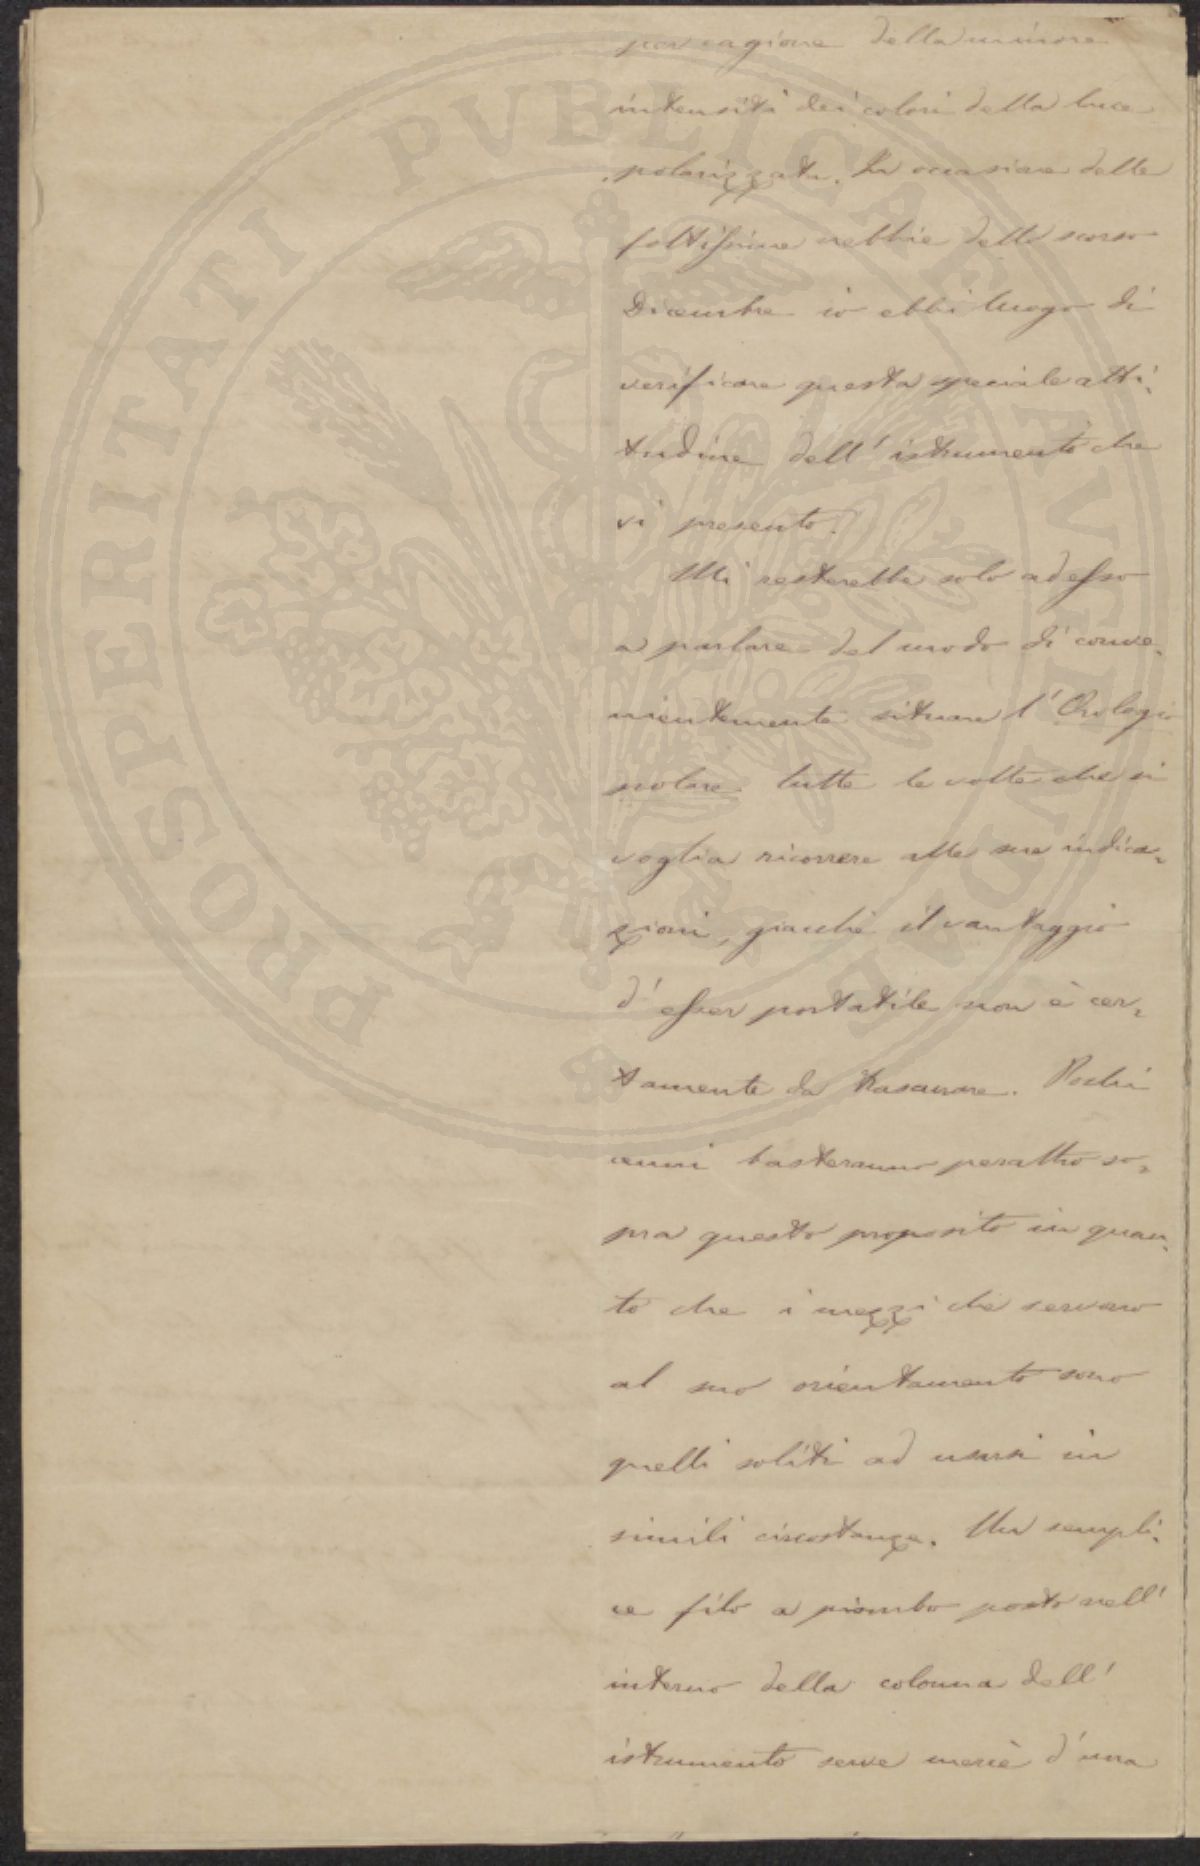 per cagione della minore
intensità dei colori della luce
polarizzata. In occasione delle
foltissime nebbie dello scorso
Dicembre io ebbi luogo di
verificare questa speciale atti-
tudine dell' istrumento che
vi presento.
Mi resterebbe solo adesso
a parlare del modo di conve-
nientemente situare l' Orologio
polare tutte le volte che si
voglia ricorrere alle sue indica-
zioni, giacchè il vantaggio
d' esser portatile non è cer-
tamente da trasandare. Pochi
cenni basteranno peraltro so-
pra questo proposito in quan-
to che i mezzi che servono
al suo orientamento sono
quelli soliti ad usarsi in
simili circostanze. Un sempli-
ce filo a piombo posto nell'
interno della colonna dell'
istrumento serve mercè d' una
PROSPERITATI PVBLICAE AVGENDAE